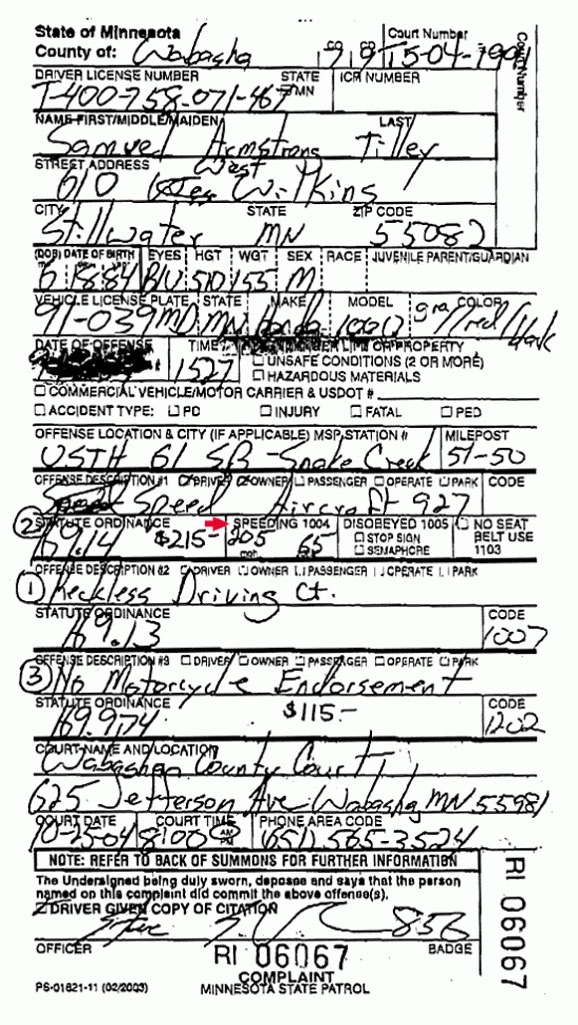 State of Minnesota
County of: Wabasha
Court Number
T5-04-1991
Court Number
DRIVER LICENSE NUMBER STATE ICR NUMBER
T-400-758-071-467 MN
NAME-FIRST/MIDDLE/MAIDEN LAST
Samuel Armstrong Tilley
STREET ADDRESS
610 West Wilkins
CITY STATE ZIP CODE
Stillwater MN 55082
(DOB) DATE OF BIRTH EYES HGT WGT SEX RACE JUVENILE PARENT/GUARDIAN
6 18 84 BLU 510 155 M
VEHICLE LICENSE PLATE STATE MAKE MODEL COLOR
91-039MD MN Honda 1000 gra/red/black
DATE OF OFFENSE TIME LIFE OR PROPERTY
1527 ☐ UNSAFE CONDITIONS (2 OR MORE)
☐ HAZARDOUS MATERIALS
☐ COMMERCIAL VEHICLE/MOTOR CARRIER & USDOT #
☐ ACCIDENT TYPE: ☐ PD ☐ INJURY ☐ FATAL ☐ PED
OFFENSE LOCATION & CITY (IF APPLICABLE) MSP STATION # MILEPOST
USTH 61 SB - Snake Creek 51-50
OFFENSE DESCRIPTION #1 ☐ DRIVER ☐ OWNER ☐ PASSENGER ☐ OPERATE ☐ PARK CODE
Speed Aircraft 927
② STATUTE ORDINANCE SPEEDING 1004 DISOBEYED 1005 ☐ NO SEAT BELT USE 1103
169.14 $215- 205 mph 65 ☐ STOP SIGN
☐ SEMAPHORE
OFFENSE DESCRIPTION #2 ☐ DRIVER ☐ OWNER ☐ PASSENGER ☐ OPERATE ☐ PARK
① Reckless Driving Ct.
STATUTE ORDINANCE CODE
169.13 1007
OFFENSE DESCRIPTION #3 ☐ DRIVER ☐ OWNER ☐ PASSENGER ☐ OPERATE ☐ PARK
③ No Motorcycle Endorsement
STATUTE ORDINANCE CODE
169.974 $115- 1202
COURT-NAME AND LOCATION
Wabasha County Court
625 Jefferson Ave Wabasha MN 55981
COURT DATE COURT TIME PHONE AREA CODE
10-25-04 8:00 AM PM (651) 565-3524
NOTE: REFER TO BACK OF SUMMONS FOR FURTHER INFORMATION
The Undersigned being duly sworn, deposes and says that the person
named on this complaint did commit the above offense(s).
DRIVER GIVEN COPY OF CITATION
856
OFFICER RI 06067 BADGE
COMPLAINT
PS-01621-11 (02/2003) MINNESOTA STATE PATROL
RI 06067